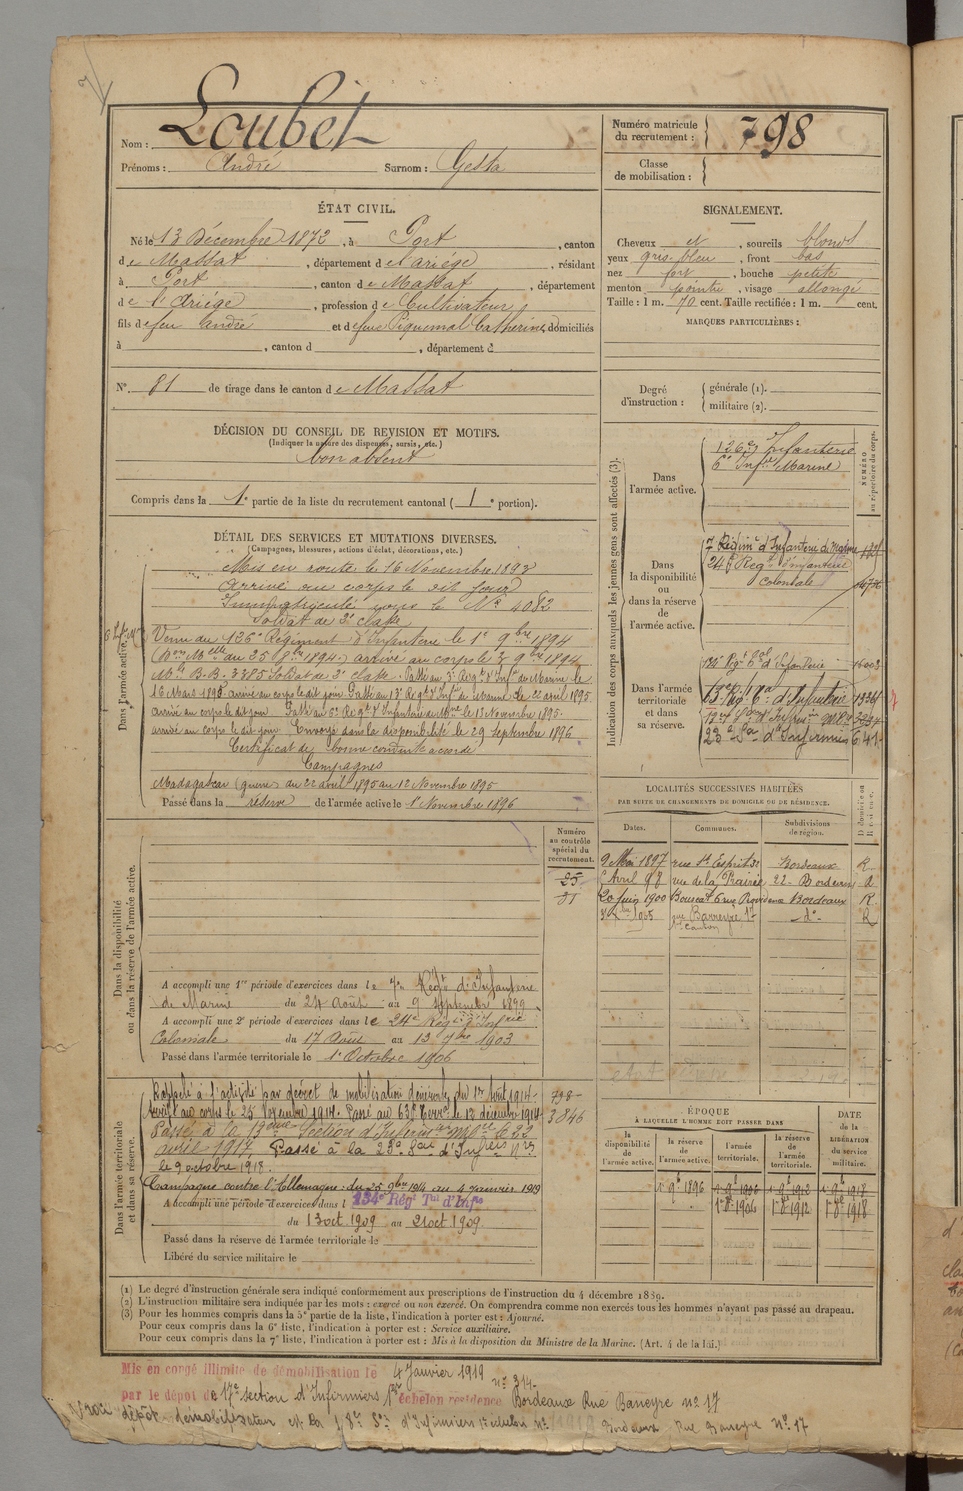 Nom : Loubet
Prénoms : André Surnom : Gesta
Numéro matricule
du recrutement : 798
Classe
de mobilisation :
ÉTAT CIVIL.
Né le 13 Décembre 1872, à Port, canton
de Massat, département de l'ariège, résidant
à Port, canton de Massat, département
de l'Ariége, profession de Cultivateur
fils de feu André et de feue Piquemal Catherine, domiciliés
à , canton d , département d
N° 81 de tirage dans le canton de Massat
SIGNALEMENT.
Cheveux et , sourcils blonds
yeux gris bleu , front bas
nez fort , bouche petite
menton pointu , visage allongé
Taille : 1 m. 70 cent. Taille rectifiée : 1 m. cent.
MARQUES PARTICULIÈRES :
Degré
d'instruction :
générale (1).
militaire (2).
DÉCISION DU CONSEIL DE REVISION ET MOTIFS.
(Indiquer la nature des dispenses, sursis, etc.)
bon absent
Compris dans la 1e partie de la liste du recrutement cantonal ( 1e portion).
DÉTAIL DES SERVICES ET MUTATIONS DIVERSES.
(Campagnes, blessures, actions d'éclat, décorations, etc.)
Dans l'armée active.
Mis en route le 16 Novembre 1893
Arrivé au corps le dit jour
Immatriculé sous le N° 4082
Soldat de 2e classe
Venu du 126e Régiment d'Infanterie le 1er 9bre 1894
(Don Melle du 25 8bre 1894) arrivé au corps le 3 9bre 1894
Mle B.B. 3385 Soldat de 2e classe. Passé au 3e Régt d'Infie de Marine le
16 Mars 1895 arrivé au corps le dit jour. Passé au 13e Régt d'Infie de Marine le 22 avril 1895
arrivé au corps le dit jour. Passé au 6e Régt d'Infanterie de Mne le 13 Novembre 1895.
arrivé au corps le dit jour. Envoyé dans la disponibilité le 29 septembre 1896
Certificat de bonne conduite accordé
Campagnes
Madagascar (guerre) du 22 avril 1895 au 12 Novembre 1895
Passé dans la réserve de l'armée active le 1er Novembre 1896
Indication des corps auxquels les jeunes gens sont affectés (3).
NUMÉRO
au répertoire du corps.
Dans
l'armée active.
126e Infanterie
6e Infie Marine
Dans
la disponibilité
ou
dans la réserve
de
l'armée active.
7 Régimt d'Infanterie de Marine
24e Regt d'infanterie
Coloniale
Dans l'armée
territoriale
et dans
sa réserve.
23e Son d'Infirmiers 641
LOCALITÉS SUCCESSIVES HABITÉES
PAR SUITE DE CHANGEMENTS DE DOMICILE OU DE RÉSIDENCE.
Dates. Communes. Subdivisions
de région.
9 Mai 1897 rue St Esprit 32 Bordeaux R
Avril 98 rue de la Prairie 22 - Bordeaux R
20 Juin 1900 Bouscat 6 rue Providence Bordeaux R
1905 rue Barreyre 17 - do - R
1er Canton
Numéro
au contrôle
spécial du
recrutement.
25
Dans la disponibilité
ou dans la réserve de l'armée active.
A accompli une 1re période d'exercices dans le 7e Régt d'Infanterie
de Marine du 24 Août au 9 septembre 1899
A accompli une 2e période d'exercices dans le 24e Régt d'Infrie
Coloniale du 17 Août au 13 7bre 1903
Passé dans l'armée territoriale le 1er Octobre 1906
Dans l'armée territoriale
et dans sa réserve.
Rappelé à l'activité par décret de mobilisation générale du 1er Août 1914 - 798 -
Arrivé au corps le 25 Novembre 1914. Passé au 63e Terral le 12 décembre 1914 3846
Passé à la 13ème Section d'Infirmiers Mres le 22
avril 1917. Passé à la 23e Son d'Infiers Mres
le 9 octobre 1918.
Campagne contre l'Allemagne : du 25 9bre 1914 au 4 janvier 1919
A accompli une période d'exercices dans l 134e Régt Tal d'Infie
du 13 oct 1909 au 21 oct 1909
Passé dans la réserve de l'armée territoriale le
Libéré du service militaire le
ÉPOQUE
À LAQUELLE L'HOMME DOIT PASSER DANS
la
disponibilité
de
l'armée active.
la réserve
de
l'armée active.
l'armée
territoriale.
la réserve
de
l'armée
territoriale.
DATE
de la
LIBÉRATION
du service
militaire.
1er 9e 1896 1er 9e 1906 1er 9e 1912 1er 9e 1918
1er 8e 1906 1er 8e 1912 1er 8e 1918
(1) Le degré d'instruction générale sera indiqué conformément aux prescriptions de l'instruction du 4 décembre 1889.
(2) L'instruction militaire sera indiquée par les mots : exercé ou non exercé. On comprendra comme non exercés tous les hommes n'ayant pas passé au drapeau.
(3) Pour les hommes compris dans la 5e partie de la liste, l'indication à porter est : Ajourné.
Pour ceux compris dans la 6e liste, l'indication à porter est : Service auxiliaire.
Pour ceux compris dans la 7e liste, l'indication à porter est : Mis à la disposition du Ministre de la Marine. (Art. 4 de la loi.)
Mis en congé illimité de démobilisation le 4 Janvier 1919 n° 314.
par le dépôt de 17e section d'Infirmiers 1er échelon residence Bordeaux Rue Barreyre n° 17
dépôt démobilisateur et la 18e Son d'Infirmiers 1er échelon n° Bordeaux Rue Barreyre N° 17